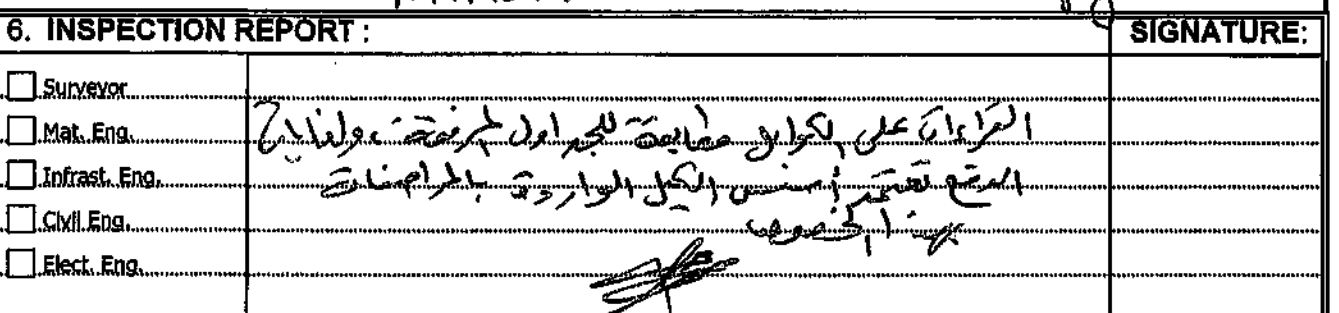 6. INSPECTION REPORT :
SIGNATURE:
Surveyor
Mat. Eng.
Infrast. Eng.
Civil Eng.
Elect. Eng.
القراءات على الكوابل مطابقة للجداول المرفقة، ولغايات
الدفع تعتمد أسس الكيل الواردة بالمواصفات
بهذا الخصوص